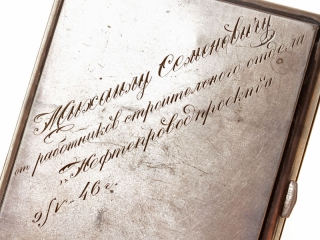 Михаилу Семеновичу
от работников строительного отдела
"Нефтепроводпроект"а
25/V-46 г.